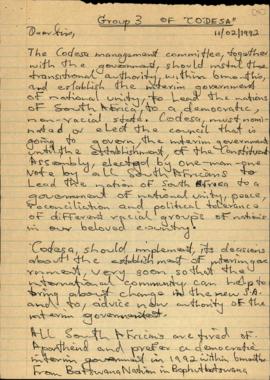 Group 3 OF "CODESA"
Dear Sirs, 11/02/1992
The Codesa management committee, together
with the government, should instal the
transitional authority, within 6months,
and establish the interim government
of national unity, to Lead the nations
of South Africa to a democratic,
non-racial state. Codesa, must nomi-
nated or elect the council that is
going to govern, the interim government
until the establishment of the Constituent
Assembly, elected by one-man-one
Vote by all South Africans to
Lead the nation of South Africa to a
government of national unity, peace,
reconciliation and political tolerance
of different racial groups of nations
in our beloved country.
Codesa, should implement, its decisions
about the establishment of interim gov
ernment, very soon, so that the
international community can help to
bring about change in the new S.A.
and to, advice under authority of the
interim government.
All South Africans are tired of
Apartheid and prefer a democratic
interim goverment in 1992 within 6months
From Batswana Nation in Bophuthatswana